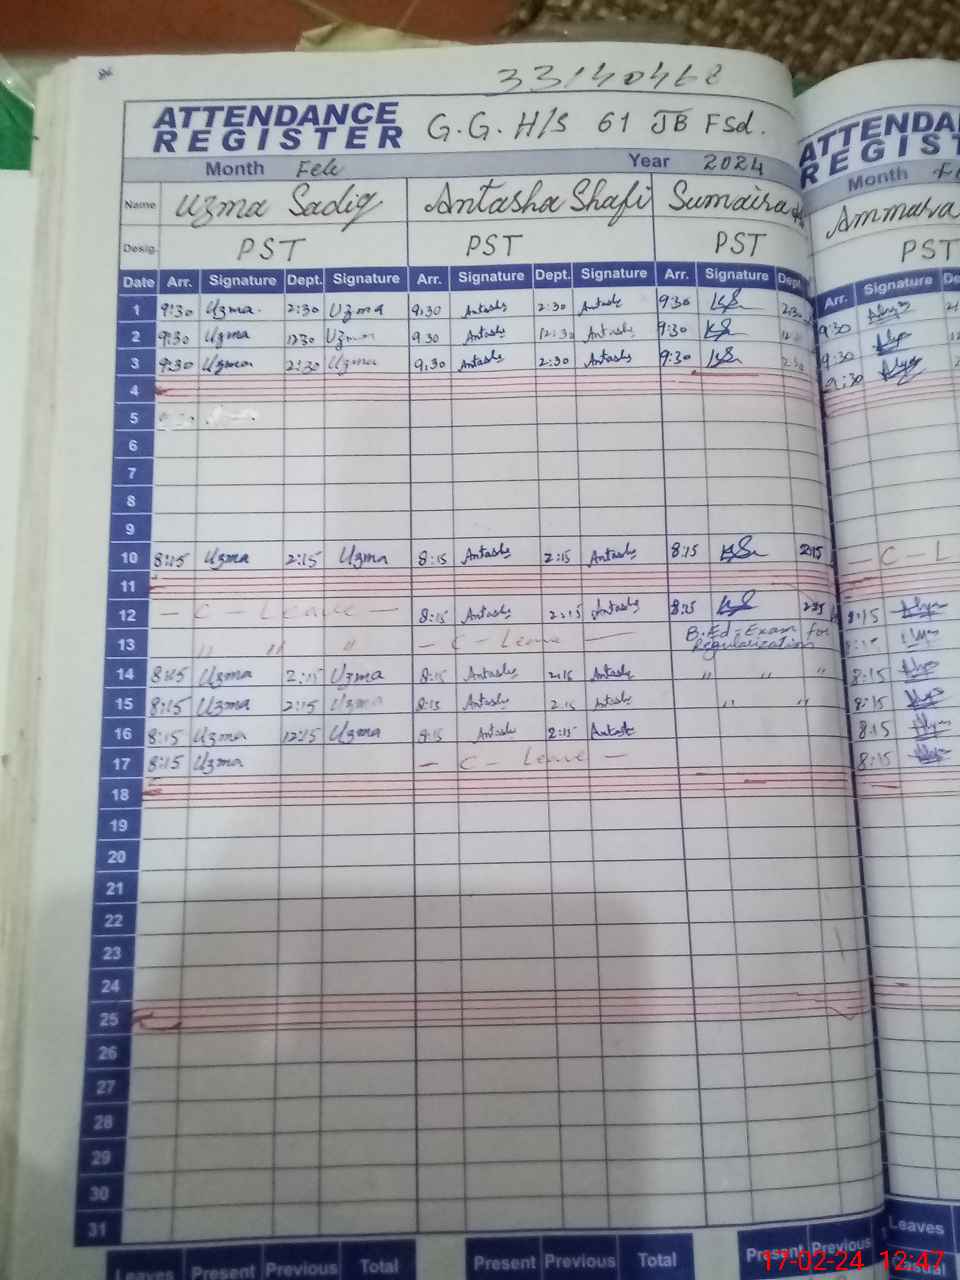 33140468
ATTENDANCE
REGISTER
G.G.H/S 61 JB FSd.
Month Feb Year 2024
Name Uzma Sadiq Antasha Shafi Sumaira
Desig. PST PST PST
Date Arr. Signature Dept. Signature Arr. Signature Dept. Signature Arr. Signature Dept.
1 9:30 Uzma. 2:30 Uzma 9:30 Antasha 2:30 Antasha 9:30 2:30
2 9:30 Uzma 12:30 Uzma 9:30 Antasha 12:30 Antasha 9:30
3 9:30 Uzma 2:30 Uzma 9:30 Antasha 2:30 Antasha 9:30 2:30
4
5 9:30
6
7
8
9
10 8:15 Uzma 2:15 Uzma 8:15 Antasha 2:15 Antasha 8:15 2:15
11
12 – C – Leave – 8:15 Antasha 2:15 Antasha 8:15 2:15
13 " " " – C – Leave – B.Ed-Exam for
Regularization
14 8:15 Uzma 2:15 Uzma 8:15 Antasha 2:15 Antasha " " "
15 8:15 Uzma 2:15 Uzma 8:15 Antasha 2:15 Antasha " "
16 8:15 Uzma 12:15 Uzma 8:15 Antasha 2:15 Antasha
17 8:15 Uzma – C – Leave –
18
19
20
21
22
23
24
25
26
27
28
29
30
31
Leaves Present Previous Total Present Previous Total Present Previous
ATTENDA
REGIST
Month
Ammara
PST
Arr. Signature De
9:30
9:30
9:30
– C – L
8:15
8:15
8:15
8:15
8:15
8:15
Leaves
17-02-24 12:47